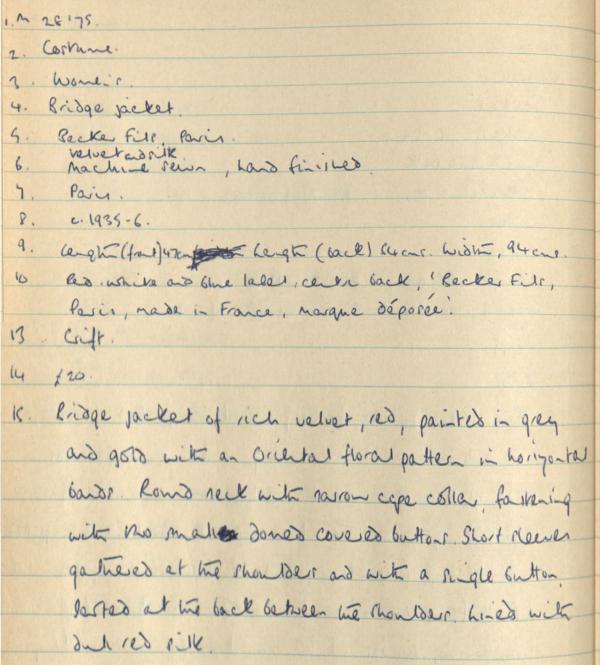 1. M 28'75.
2. Costume.
3. Women's.
4. Bridge jacket.
5. Becker Fils, Paris.
velvet and silk
6. Machine sewn, hand finished.
7. Paris.
8. c. 1935-6.
9. Length (front) 47cm Length (back) 54cms. Width, 94cms.
10 Red, white and blue label, centre back, 'Becker Fils,
Paris, made in France, marque déposée'.
13. Gift.
14 £20.
15. Bridge jacket of rich velvet, red, painted in grey
and gold with an Oriental floral pattern in horizontal
bands. Round neck with narrow cape collar, fastening
with two small domed covered buttons. Short sleeves
gathered at the shoulders and with a single button.
Darted at the back between the shoulders. Lined with
dull red silk.